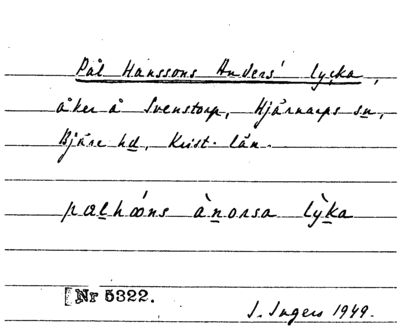 Pål Hanssons Anders' lycka,
åker å Svenstorp, Hjärnarps sn,
Bjäre hd, Krist. län.
pælhǿns ànorsa lỳka
[Nr 5322.
I. Ingers 1949.